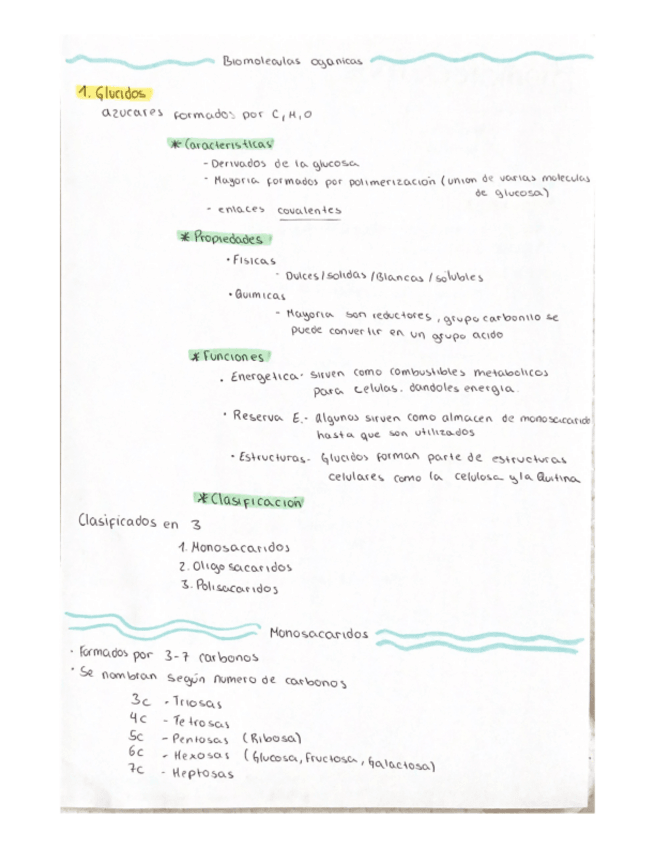 Biomoleculas oganicas
1. Glucidos
azucares formados por C, H, O
* Caracteristicas
- Derivados de la glucosa
- Mayoria formados por polimerización (union de varias moleculas
de glucosa)
- enlaces covalentes
* Propiedades
• Fisicas
- Dulces/solidas/Blancas/solubles
• Quimicas
- Mayoria son reductores, grupo carbonilo se
puede convertir en un grupo acido
* Funciones
• Energetica- sirven como combustibles metabolicos
para celulas. dandoles energia.
• Reserva E.- algunos sirven como almacen de monosacaride
hasta que son utilizados
• Estructuras- Glucidos forman parte de estructuras
celulares como la celulosa y la Quitina
* Clasificación
Clasificados en 3
1. Monosacaridos
2. Oligosacaridos
3. Polisacaridos
Monosacaridos
• Formados por 3-7 carbonos
• Se nombran según numero de carbonos
3c - Triosas
4c - Tetrosas
5c - Pentosas (Ribosa)
6c - Hexosas (Glucosa, Fructosa, Galactosa)
7c - Heptosas